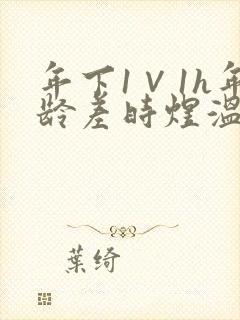 年下1V1h年
龄差时煜温
葉绮